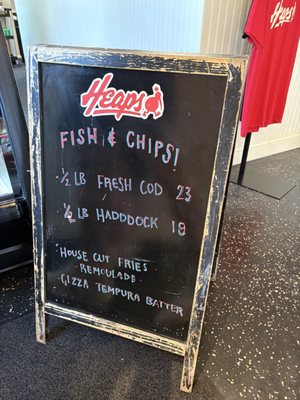 Heaps
FISH & CHIPS!
1/2 LB FRESH COD 23
1/2 LB HADDDOCK 19
HOUSE CUT FRIES
REMOULADE
GIZZA TEMPURA BATTER
Heaps